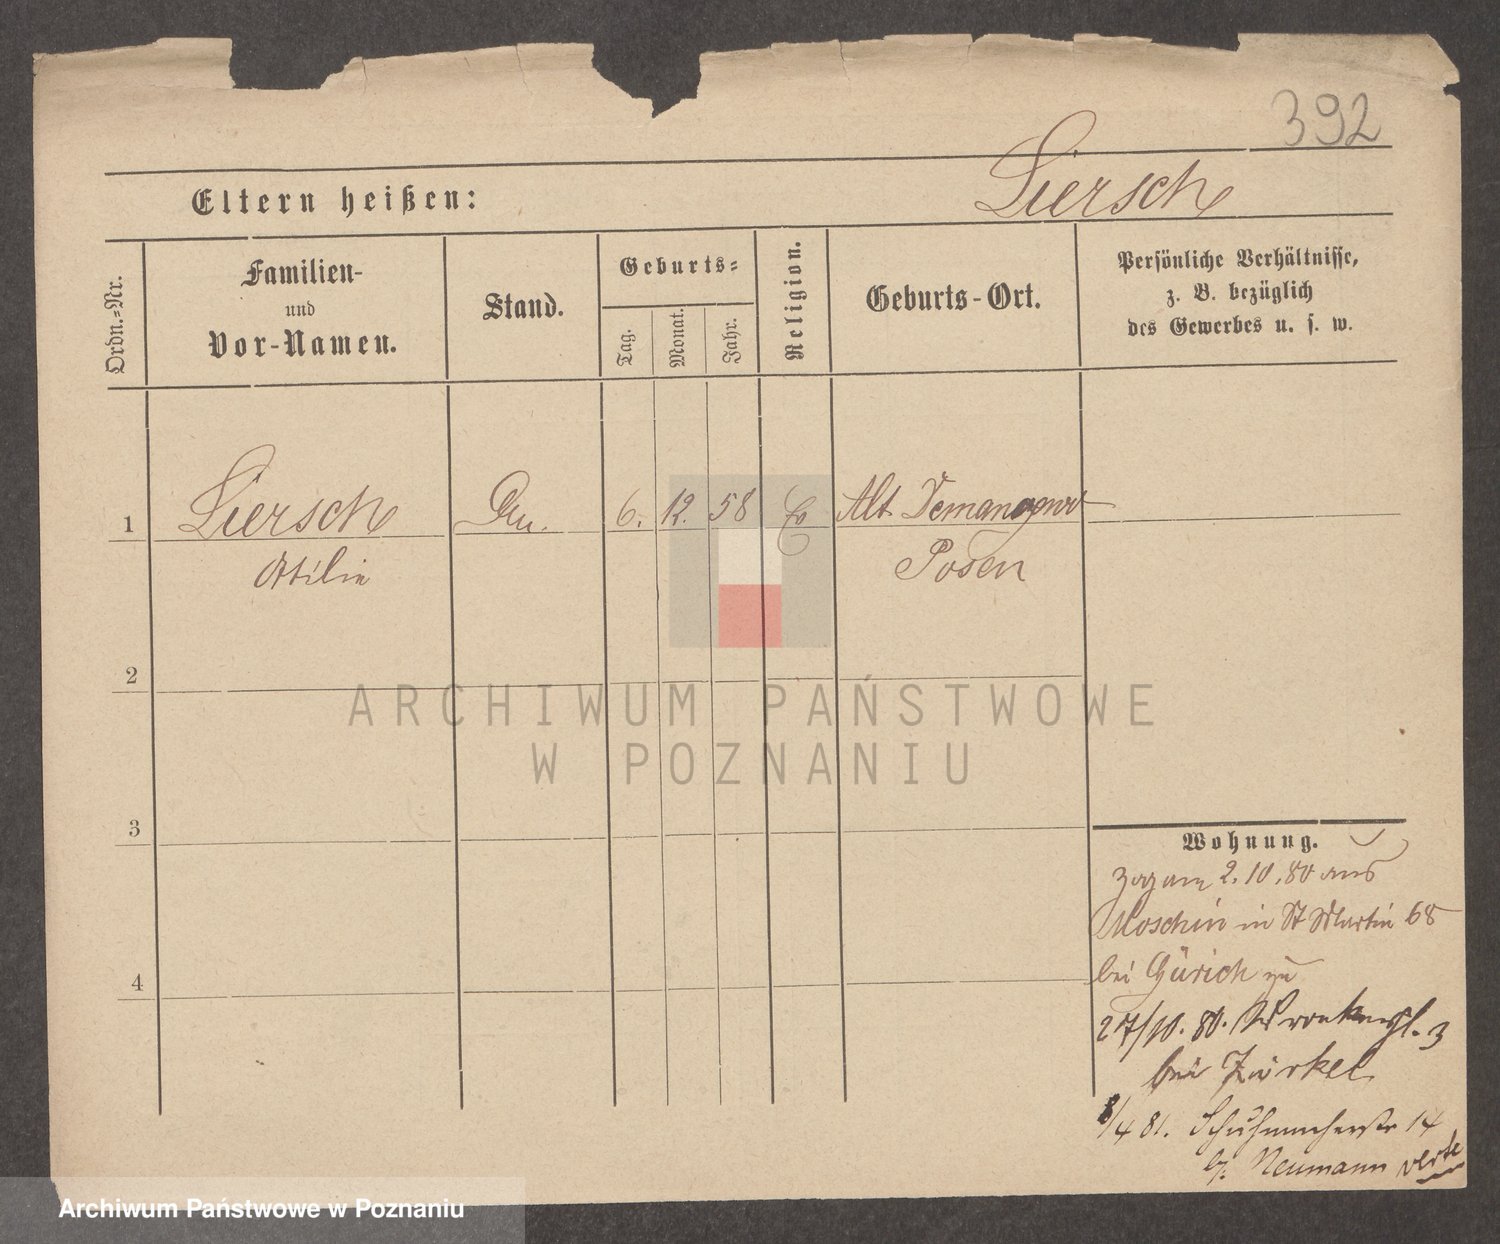 392
Eltern heißen: Liersch
Ordn.-Nr.
Familien-
und
Vor-Namen.
Stand.
Geburts-
Tag.
Monat.
Jahr.
Religion.
Geburts-Ort.
Persönliche Verhältnisse,
z. B. bezüglich
des Gewerbes u. s. w.
1 Liersch 6. 12. 58 Alt
Posen
2
3
4
ARCHIWUM PAŃSTWOWE
W POZNANIU
Wohnung.
zog am 2.10.80 aus
Moschin in St Martin 68
bei Gürich zu
27/10. 80. 3
bei Zürkel
8/4 81. Schuhmacherstr 14
b. Neumann verte
Archiwum Państwowe w Poznaniu